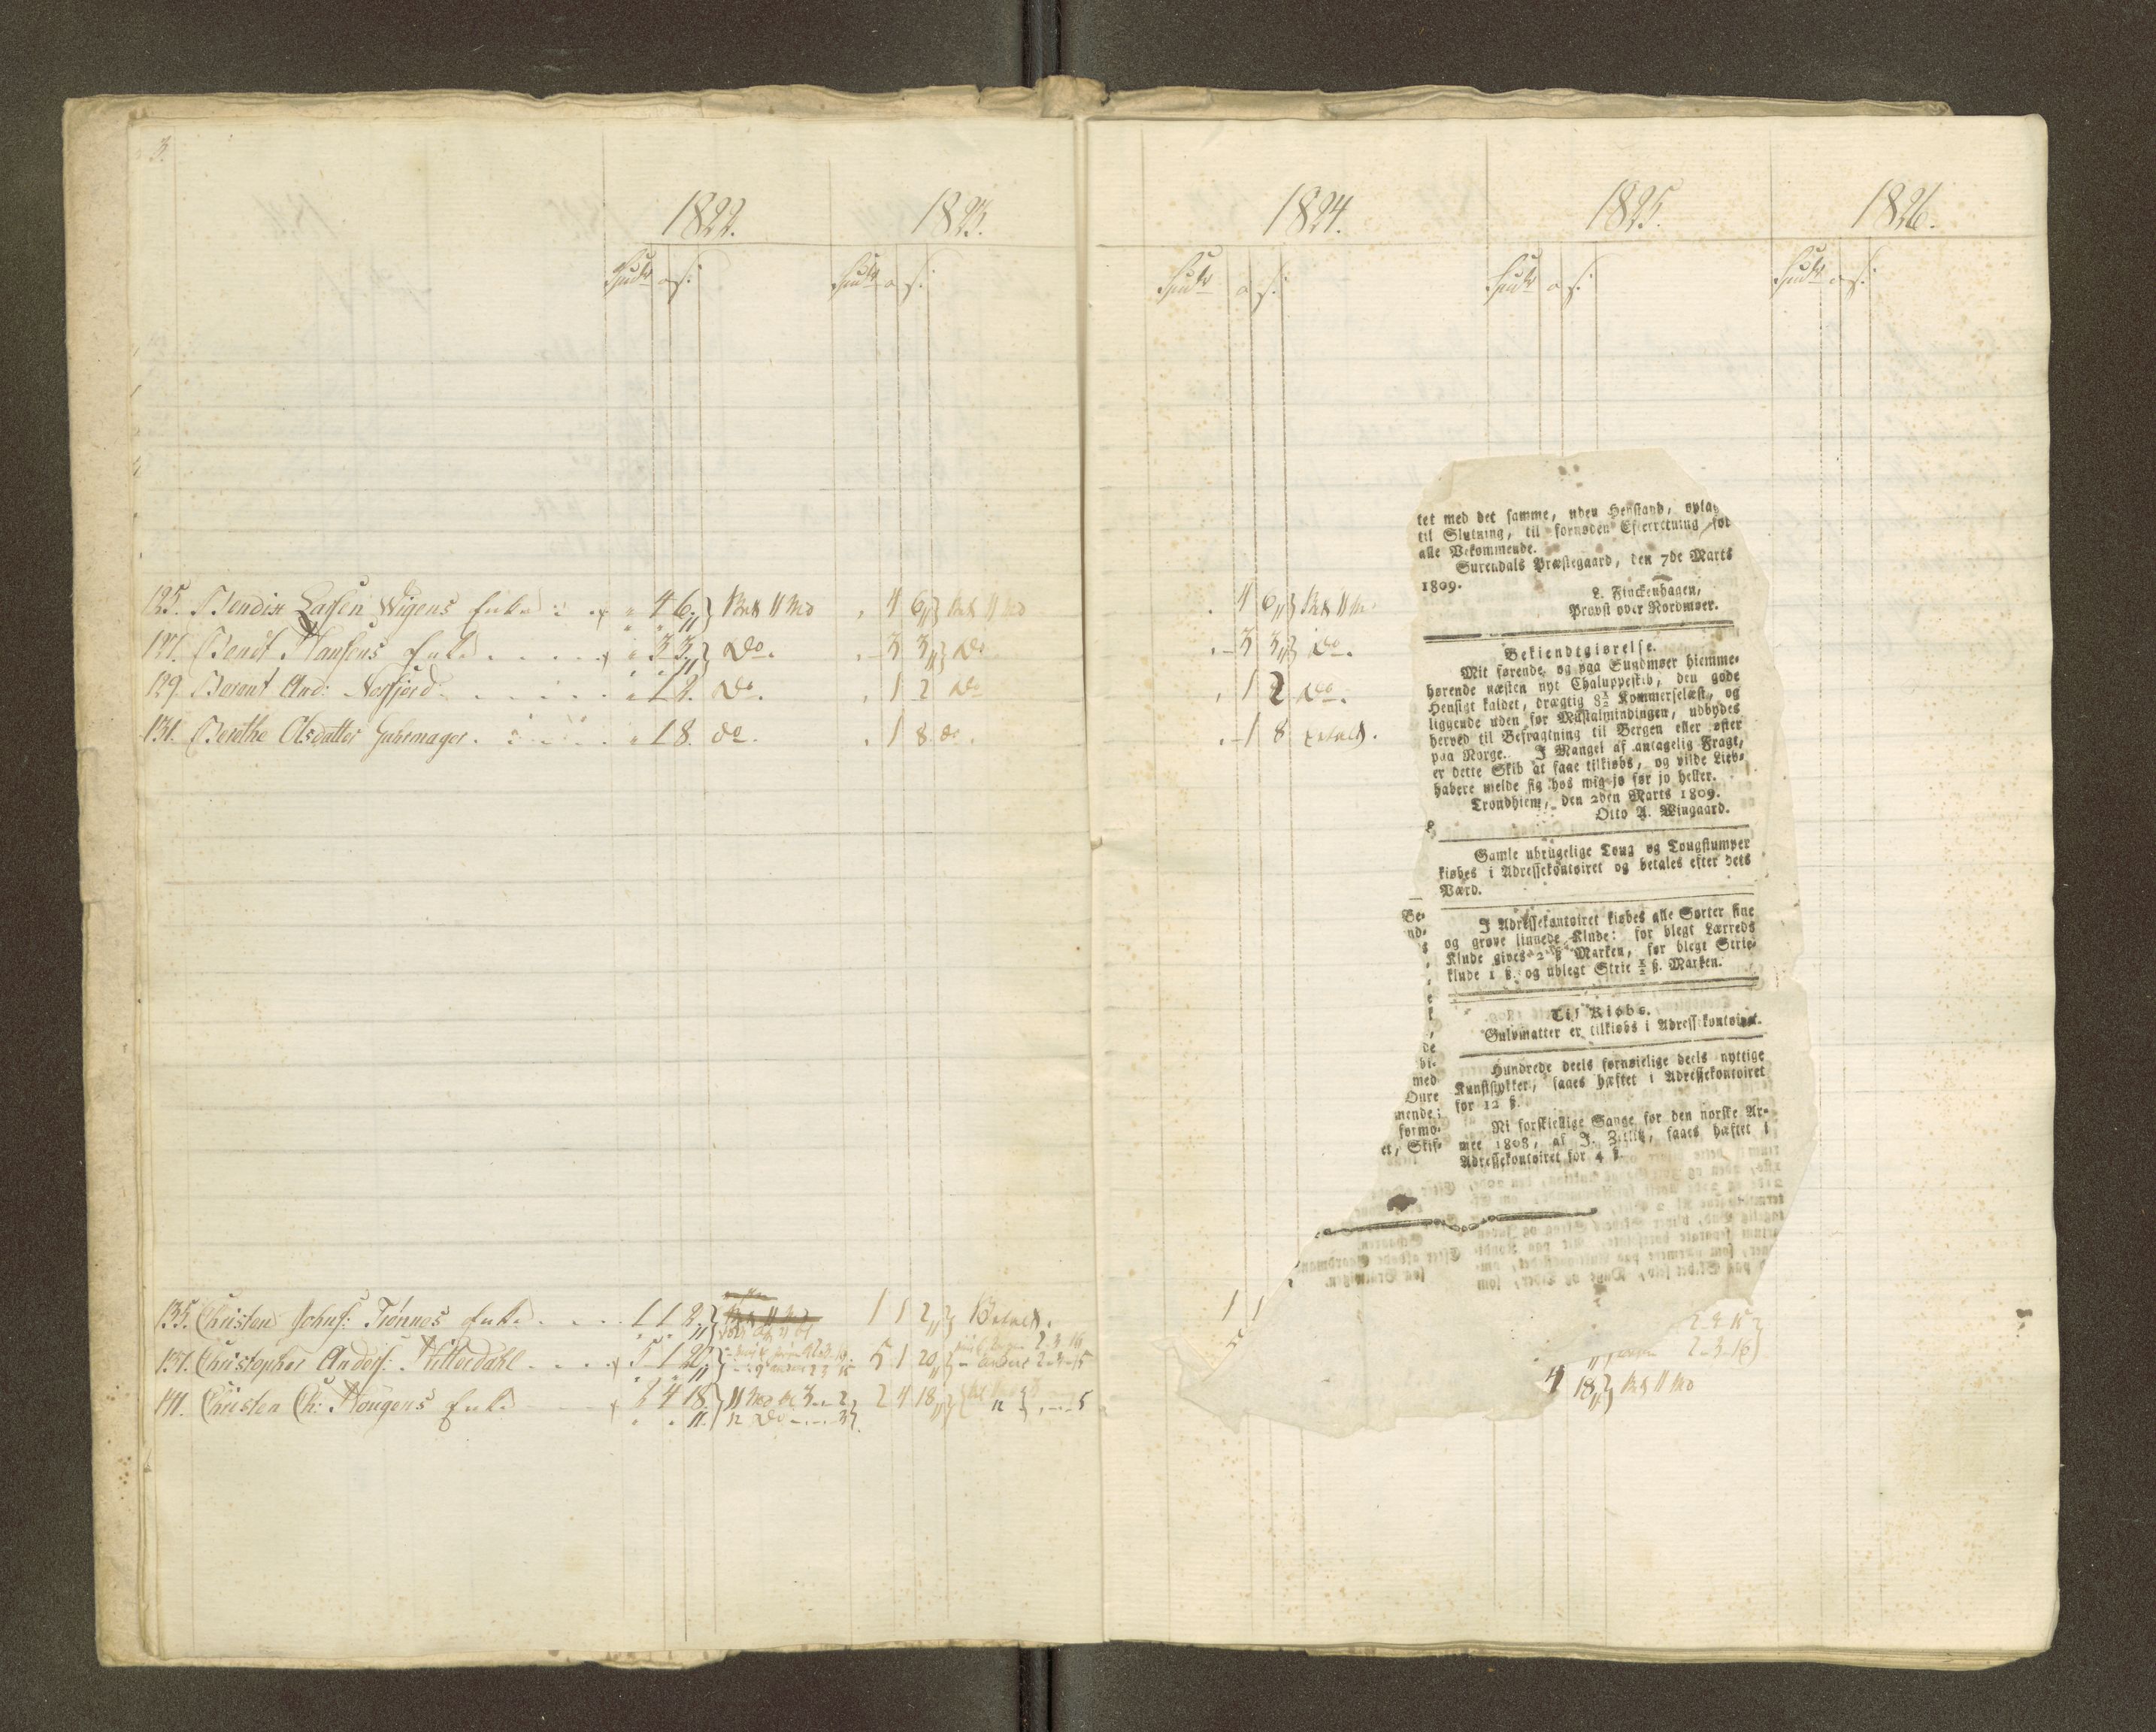 3.
1822. 1823.
Spdlr o s: Spdlr o s:
125. Bendix Larsen Wigens Enke 4 6. Bet 11 Md 4 6 Bet 11 Md
127. Bendt Hansens Enke 3 3. Do. 3 3 Do
129. Berent And: Norfjord 1 2. Do. 1 2 Do
131. Berethe Olsdatter 1 8. do. 1 8 do.
135. Christen Johns: Trønnes Enke 1 1 2. 1 1 2 Betalt.
137. Christopher Anders: 5 1 20. 5 1 20 2 3 16
2-3-15
141. Christen Ch: Hougens Enke 2 4 18. 11 Md 2 4 18
12 Do
1824. 1825. 1826.
Spdlr o s: Spdlr o s: Spdlr o s:
4 6 Bet 11 Md
3 3 Do.
1 2 Do.
1 8 betalt.
tet med det samme, uden Henstand, oplag
til Slutning, til fornøden Efterretning for
alle Vekommende.
Surendals Præstegaard, den 7de Marts
1809.
L. Finckenhagen,
Provst over Nordmøer.
Bekiendtgiørelse.
Mit førende, og paa Sundmøer hiemme-
hørende næsten nyt Chaluppeskib, den gode
Hensigt kaldet, drægtig 8½ Kommerselæst, og
liggende uden for Mustalmindingen, udbydes
herved til Befragtning til Bergen eller øster
paa Norge. I Mangel af antagelig Fragt,
er dette Skib at faae tilkiøbs, og vilde Lieb-
habere melde sig hos mig jo før jo heller.
Trondhiem, den 2den Marts 1809.
Otto A. Wingaard.
Gamle ubrugelige Toug og Tougstumper
kiøbes i Adressekontoiret og betales efter dets
Værd.
I Adressekontoiret kiøbes alle Sorter fine
og grove linnede Klude: for blegt Lærreds
Klude gives 2 ß Marken, for blegt Strie-
klude 1 ß. og ublegt Strie ½ ß. Marken.
Til Kiøbs.
Gulvmatter er tilkiøbs i Adressekontoiret.
Hundrede deels fornøielige deels nyttige
Kunststykker, faaes hæftet i Adressekontoiret
for 12 ß.
Ni forskiellige Sange for den norske Ar-
mee 1808, af J. Zetlitz, faaes hæftet i
Adressekontoiret for 4 ß.
Be-
nd-
s
,
e
k
,
de
bi-
med
Oure
mende;
formo-
et, Skif-
1 1
5 2 3 15
2-3-16
4 18 Bet 11 Md